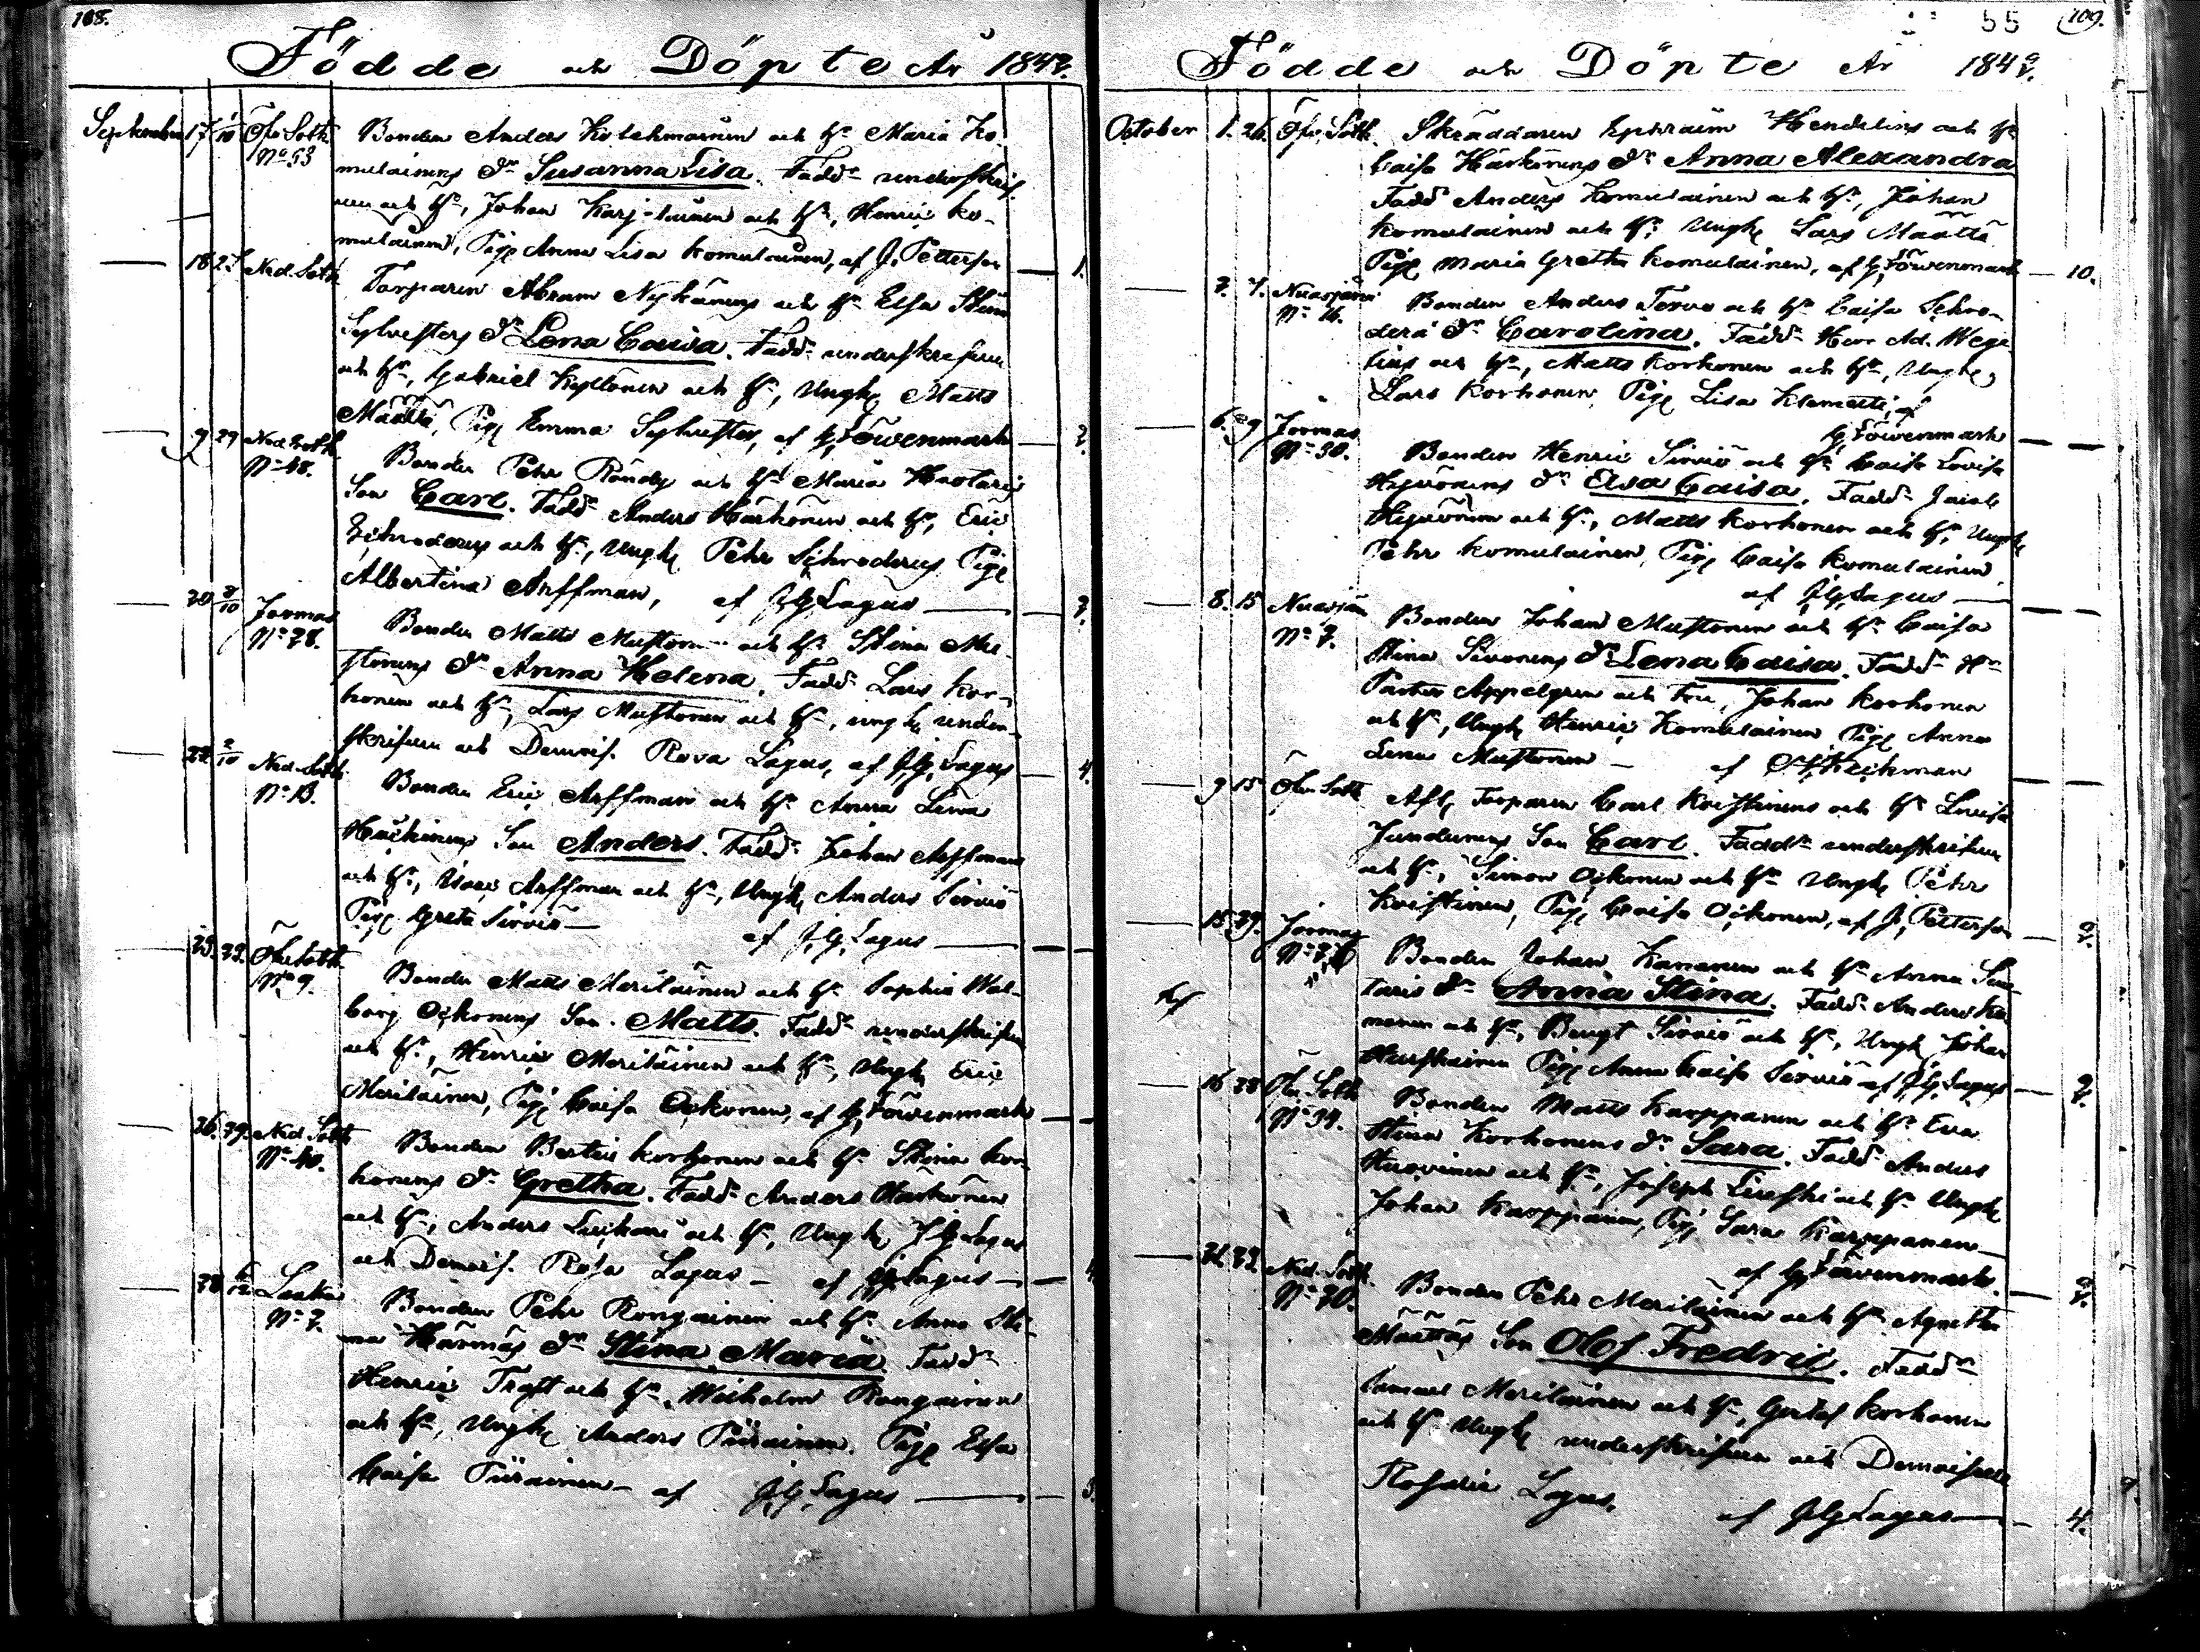 108.
Födde och Döpte År 1842.
September 17 1/10 Öfv. Sotk. Bonden Anders Kolehmainen och H. Maria Ko-
No 53 mulainens Dr Susanna Lisa. Fadd. underskrif-
ven och H., Johan Karjalainen och H., Henric Ko-
mulainen, Pig. Anna Lisa Komulainen, af J. Petterson 1.
— 18 Ned. Sotk. Torparen Abram Nykänens och H. Elsa Stina
Sylvesters Dr Lena Caisa. Fadd. underskrifven
och H., Gabriel Kyllönen och H., Ungk. Matts
Määttä, Pig. Emma Sylvester, af G. Löwenmark 2.
— 9 29 Ned. Sotk. Bonden Pehr Rändy och H. Maria Huotaris
No 48. Son Carl. Fadd. Anders Härkönen och H., Eric
Schroderus och H., Ungk. Pehr Schroderus, Pig.
Albertina Arffman, af J. G. Lagus
— 20 /10 Jormas Bonden Matts Mustonen och H. Stina Mu-
No 28. stonens Dr Anna Helena. Fadd. Lars Kor-
honen och H., Lars Mustonen och H., ungk. under-
skrifven och Demois. Rosa Lagus, af J. G. Lagus 4.
— 22 2/10 Ned. Sotk. Bonden Eric Arffman och H. Anna Lena
No 13. Son Anders. Fadd. Johan Arffman
och H., Arffman och H., Ungk. Anders Sirviö
Pig. Greta Sirviö — af J. G. Lagus
23. 23. Öfv. Sotk. Bonden Matts Meriläinen och H. Sophia Wal-
No 9. borg Ockonens Son Matts. Fadd. underskrifven
och H., Henric Meriläinen och H., Ungk. Eric
Meriläinen, Pig. Caisa Ockonen, af G. Löwenmark
26. 29. Ned. Sotk. Bonden Bertil Korhonen och H. Stina Kor-
No 40. honens Dr Gretha. Fadd. Anders Härkönen
och H., Anders och H., Ungk. J. G. Lagus
och Demois. Rosa Lagus — af J. G. Lagus
— 28 Bonden Pehr Rongainen och H. Anna Sti-
No 7. na Härmäs Dr Stina Maria. Fadd.
Henric Trast och H., Wilhelm Rongainen
och H., Ungk. Anders Piirainen, Pig. Elsa
Caisa Piirainen — af J. G. Lagus
55 109.
Födde och Döpte År 1842.
October 1. 26. Öfv. Sotk. Skräddaren Ephraim Hendelins och H.
Caisa Härkönens Dr Anna Alexandra
Fadd. Anders Komulainen och H., Johan
Komulainen och H., Ungk. Lars Määttä
Pig. Maria Gretha Komulainen, af G. Löwenmark 10.
— 2. 7. Nuasjärvi Bonden Anders Torvo och H. Caisa Schro-
No 16. deri Dr Carolina. Fadd. Herr Ad. Wege-
lius och H., Matts Korhonen och H., Ungk.
Lars Korhonen, Pig. Lisa Klemetti, af
G. Löwenmark
— 6. 9 Jormas Bonden Henric Sirviö och H. Caisa Lovisa
No 30. Heinonens Dr Elsa Caisa. Fadd. Jacob
och H., Matts Korhonen och H., Ungk.
Pehr Komulainen, Pig. Caisa Komulainen
af J. G. Lagus
— 8. 15 Nuasjärvi Bonden Johan Mustonen och H. Caisa
No 7. Stina Sivonens Dr Lena Caisa. Fadd. Hr
Pastor Appelgren och Fru, Johan Korhonen
och H., Ungk. Henric Komulainen, Pig. Anna
Lena Mustonen — af Heikman
— 9 15 Öfv. Sotk. Afl. Torparen Carl Kristinens och H. Lovisa
Jundunens Son Carl. Fadd. underskrifven
och H., Simon Ockonen och H. Ungk. Pehr
Kristinen, Pig. Caisa Ockonen, af J. Petterson 2.
15. 29. Jormas Bonden Johan Kananen och H. Anna
taris Dr Anna Stina. Fadd. Anders Ka-
nanen och H., Bengt Sirviö och H., Ungk. Johan
Huskainen, Pig. Anna Caisa Sirviö af J. G. Lagus 2.
— 16 28 Öfv. Sotk. Bonden Matts Karppanen och H. Eva
No 34. Stina Korhonens Dr Sara. Fadd. Anders
Huovinen och H., Joseph och H. Ungk.
Johan Karppanen, Pig. Sara Karppanen —
af G. Löwenmark. 2.
Ned. Sotk. Bonden Pehr Meriläinen och H. Agnetha
No 20. Määttäs Son Olof Fredric. Fadd.
Samuel Meriläinen och H., Gustaf Korhonen
och H. Ungk. underskrifven och Demoiselle
Rosalie Lagus, af J. G. Lagus — 4.